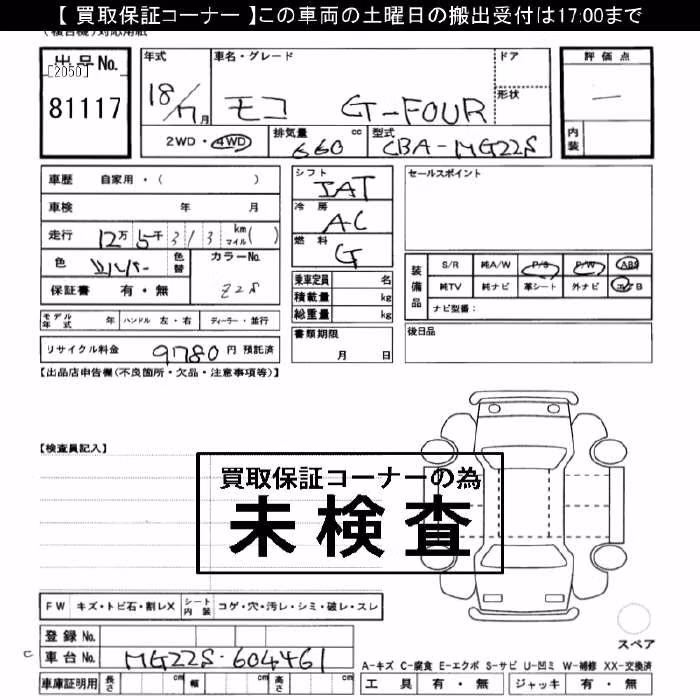 【 買取保証コーナー 】この車両の土曜日の搬出受付は17:00まで
出品No.
[2050]
81117
年式
18/7月
車名・グレード
モコ G-FOUR
ドア
形状
2WD・4WD
排気量
660 cc
型式
CBA-MG22S
評価点
—
内装
車歴 自家用・( )
車検 年 月
走行 12万 5千 313 km マイル( )
色 シルバー 色替
カラーNo.
Z2S
保証書 有・無
シフト
IAT
冷房
AC
燃料
G
乗車定員 名
積載量 kg
総重量 kg
書類期限
月 日
セールスポイント
装備品
S/R 純A/W P/S P/W ABS
純TV 純ナビ 革シート 外ナビ エアB
ナビ型番:
後日品
モデル年式 年 ハンドル 左・右 ディーラー・並行
リサイクル料金 9780 円 預託済
【出品店申告欄(不良箇所・欠品・注意事項等)】
【検査員記入】
買取保証コーナーの為
未検査
FW キズ・トビ石・割レX シート内装 コゲ・穴・汚レ・シミ・破レ・スレ
スペア
登録 No.
C 車台 No. MG22S-604461
車庫証明用 長さ cm 幅 cm 高さ cm
A-キズ C-腐食 E-エクボ S-サビ U-凹ミ W-補修 XX-交換済
工具 有・無 ジャッキ 有・無